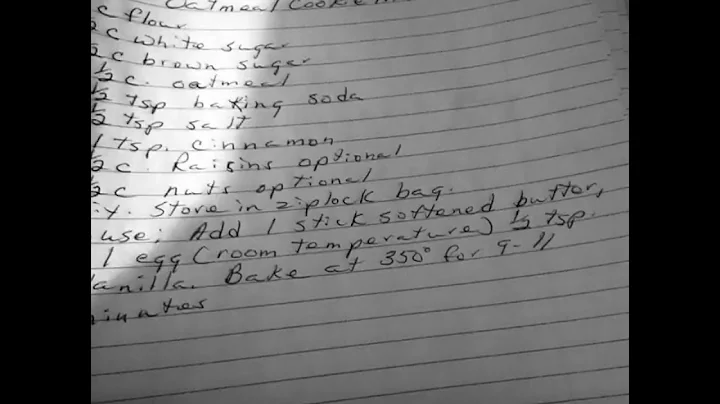 Oatmeal Cookie
c flour
2 c white sugar
2 c brown sugar
1/2 c. oatmeal
1/2 tsp baking soda
1/2 tsp salt
1 tsp. cinnamon
1/2 c. Raisins optional
2 c nuts optional
ix. Store in ziplock bag.
use: Add 1 stick softened butter,
1 egg (room temperature) 1/2 tsp.
anilla. Bake at 350° for 9-11
minutes